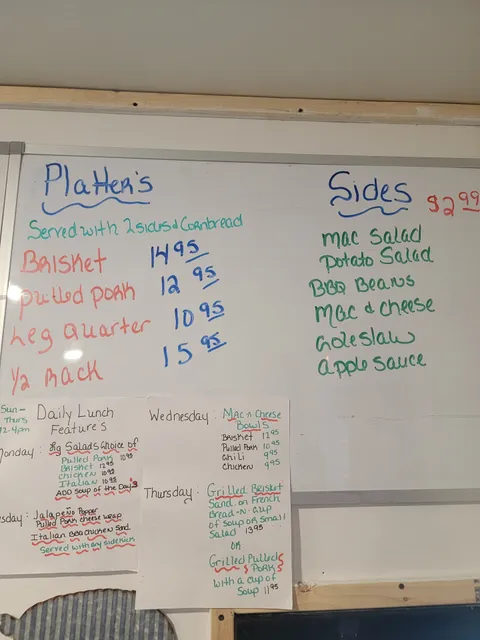 Platter's
Served with 2 sides & Cornbread
Brisket 14 95
Pulled pork 12 95
Leg quarter 10 95
1/2 Rack 15 95
Sides $2 99
Mac Salad
Potato Salad
BBQ Beans
Mac & cheese
Coleslaw
apple sauce
Sun-
Thurs
12-4pm
Daily Lunch
Feature's
Monday: Big Salads Choice of
Pulled Pork 10 95
Brisket 12 95
Chicken 10 95
Italian 10 95
ADD Soup of the Day $
Tuesday: Jalapeño Popper
Pulled Pork cheese wrap
Italian BBQ chicken Sand.
Served with any side
Wednesday: Mac n Cheese
Bowls
Brisket 12 95
Pulled Pork 10 95
Chili 9 95
Chicken 9 95
Thursday: Grilled Brisket
Sand. on French
Bread -N- cup
of soup or small
Salad 13 95
OR
Grilled Pulled
Pork
with a cup of
Soup 11 95